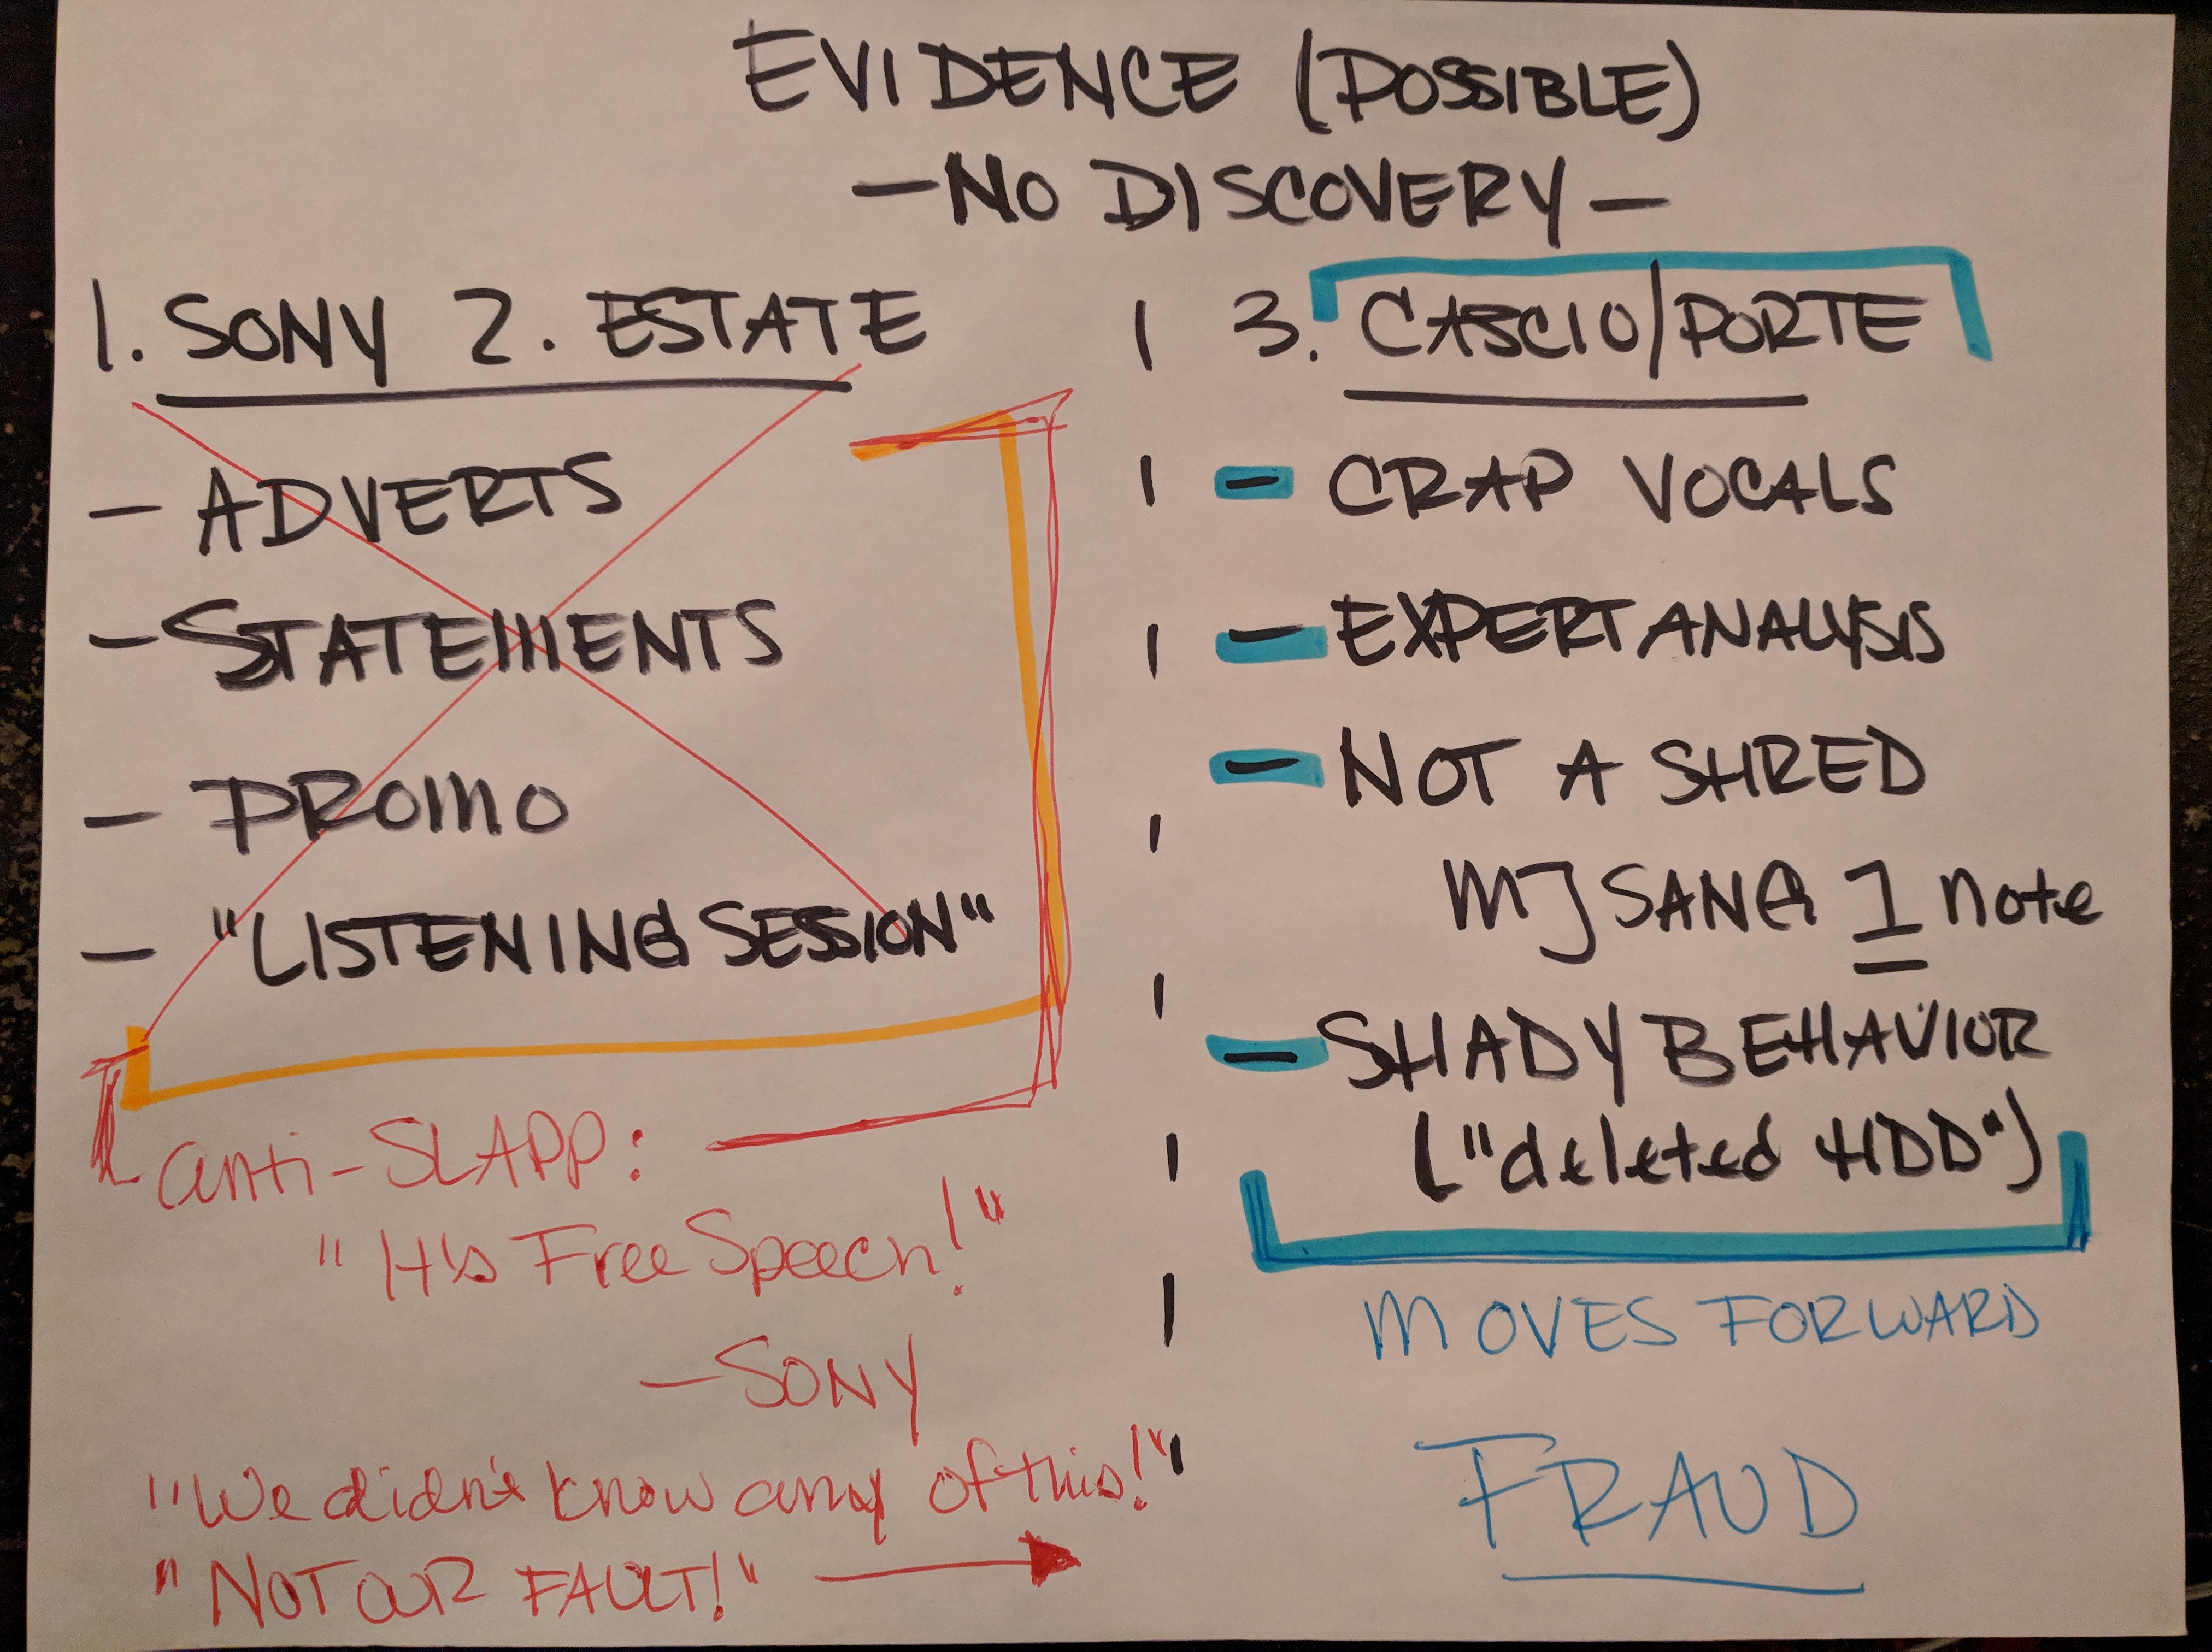 EVIDENCE (POSSIBLE)
—NO DISCOVERY—
1. SONY 2. ESTATE
- ADVERTS
- STATEMENTS
- PROMO
- "LISTENING SESSION"
anti-SLAPP:
"It's Free Speech!"
-SONY
"We didn't know any of this!"
"NOT OUR FAULT!"
3. CASCIO/PORTE
- CRAP VOCALS
- EXPERT ANALYSIS
- NOT A SHRED
MJ SANG 1 note
- SHADY BEHAVIOR
("deleted HDD")
MOVES FORWARD
FRAUD